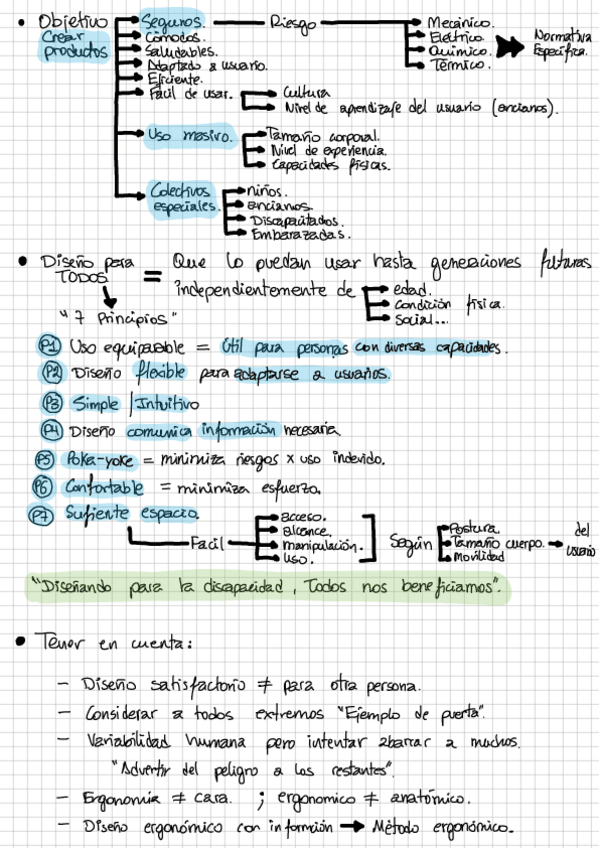 • Objetivo → Seguros. — Riesgo → Mecánico.
Crear → Cómodos. → Eléctrico → Normativa
productos → Saludables. → Químico. Específica.
→ Adaptado a usuario. → Térmico.
→ Eficiente.
→ Fácil de usar. → Cultura
→ Nivel de aprendizaje del usuario (ancianos).
→ Uso masivo. → Tamaño corporal.
→ Nivel de experiencia.
→ Capacidades físicas.
→ Colectivos → niños.
especiales. → ancianos.
→ Discapacitados.
→ Embarazadas.
• Diseño para = Que lo puedan usar hasta generaciones futuras
TODOS independientemente de → edad.
→ Condición física.
"7 Principios" → Social...
P1 Uso equiparable = Útil para personas con diversas capacidades.
P2 Diseño flexible para adaptarse a usuarios.
P3 Simple / Intuitivo
P4 Diseño comunica información necesaria
P5 Poka-yoke = minimiza riesgos x uso indevido.
P6 Confortable = minimiza esfuerzo.
P7 Sufiente espacio.
→ Facil → acceso. Según → Postura. del
→ alcance. → Tamaño cuerpo. → usuario
→ manipulación. → Movilidad
→ uso.
"Diseñando para la discapacidad, Todos nos beneficiamos".
• Tener en cuenta:
– Diseño satisfactorio ≠ para otra persona.
– Considerar a todos extremos "Ejemplo de puerta".
– Variabilidad humana pero intentar abarcar a muchos.
"Advertir del peligro a los restantes".
– Ergonomía ≠ cara. ; ergonomico ≠ anatómico.
– Diseño ergonómico con información → Método ergonómico.